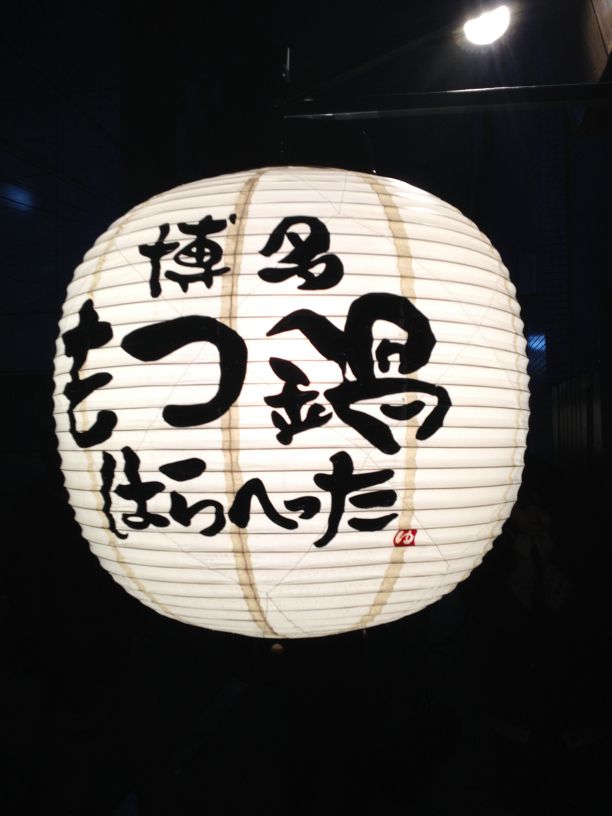 博多
もつ鍋
はらへった
ゆ